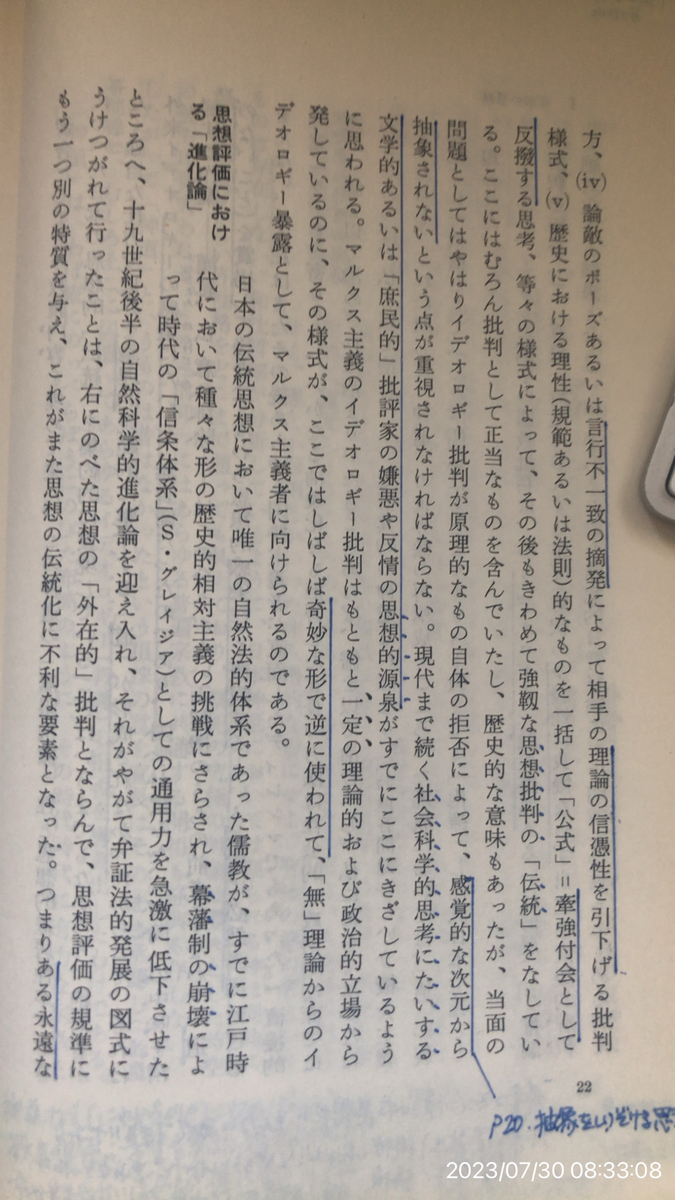 方、(iv) 論敵のポーズあるいは言行不一致の摘発によって相手の理論の信憑性を引下げる批判
様式、(v) 歴史における理性(規範あるいは法則)的なものを一括して「公式」=牽強付会として
反撥する思考、等々の様式によって、その後もきわめて強靱な思想批判の「伝統」をなしてい
る。ここにはむろん批判として正当なものを含んでいたし、歴史的な意味もあったが、当面の
問題としてはやはりイデオロギー批判が原理的なもの自体の拒否によって、感覚的な次元から
抽象されないという点が重視されなければならない。現代まで続く社会科学的思考にたいする
文学的あるいは「庶民的」批評家の嫌悪や反情の思想的源泉がすでにここにきざしているよう
に思われる。マルクス主義のイデオロギー批判はもともと一定の理論的および政治的立場から
発しているのに、その様式が、ここではしばしば奇妙な形で逆に使われて、「無」理論からのイ
デオロギー暴露として、マルクス主義者に向けられるのである。
思想評価におけ
る「進化論」
日本の伝統思想において唯一の自然法的体系であった儒教が、すでに江戸時
代において種々な形の歴史的相対主義の挑戦にさらされ、幕藩制の崩壊によ
って時代の「信条体系」(S・グレイジア)としての通用力を急激に低下させた
ところへ、十九世紀後半の自然科学的進化論を迎え入れ、それがやがて弁証法的発展の図式に
うけつがれて行ったことは、右にのべた思想の「外在的」批判とならんで、思想評価の規準に
もう一つ別の特質を与え、これがまた思想の伝統化に不利な要素となった。つまりある永遠な
22
P20.抽象をしりぞける思
2023/07/30 08:33:08